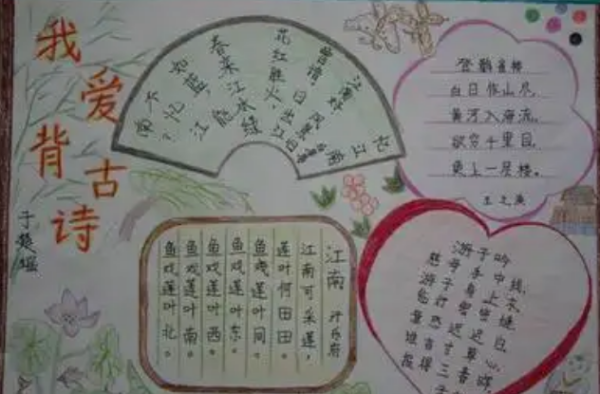 我爱背古诗
于楚瑶
忆江南
江南好
风景
曾谙
日出江
花红胜火
春来江水绿
如蓝
不忆江
南
登鹳雀楼
白日依山尽，
黄河入海流。
欲穷千里目，
更上一层楼。
王之涣
江南 汉乐府
江南可采莲，
莲叶何田田。
鱼戏莲叶间。
鱼戏莲叶东。
鱼戏莲叶西。
鱼戏莲叶南。
鱼戏莲叶北。
游子吟
慈母手中线，
游子身上衣
临行密密缝
意恐迟迟归
谁言寸草心
报得三春晖